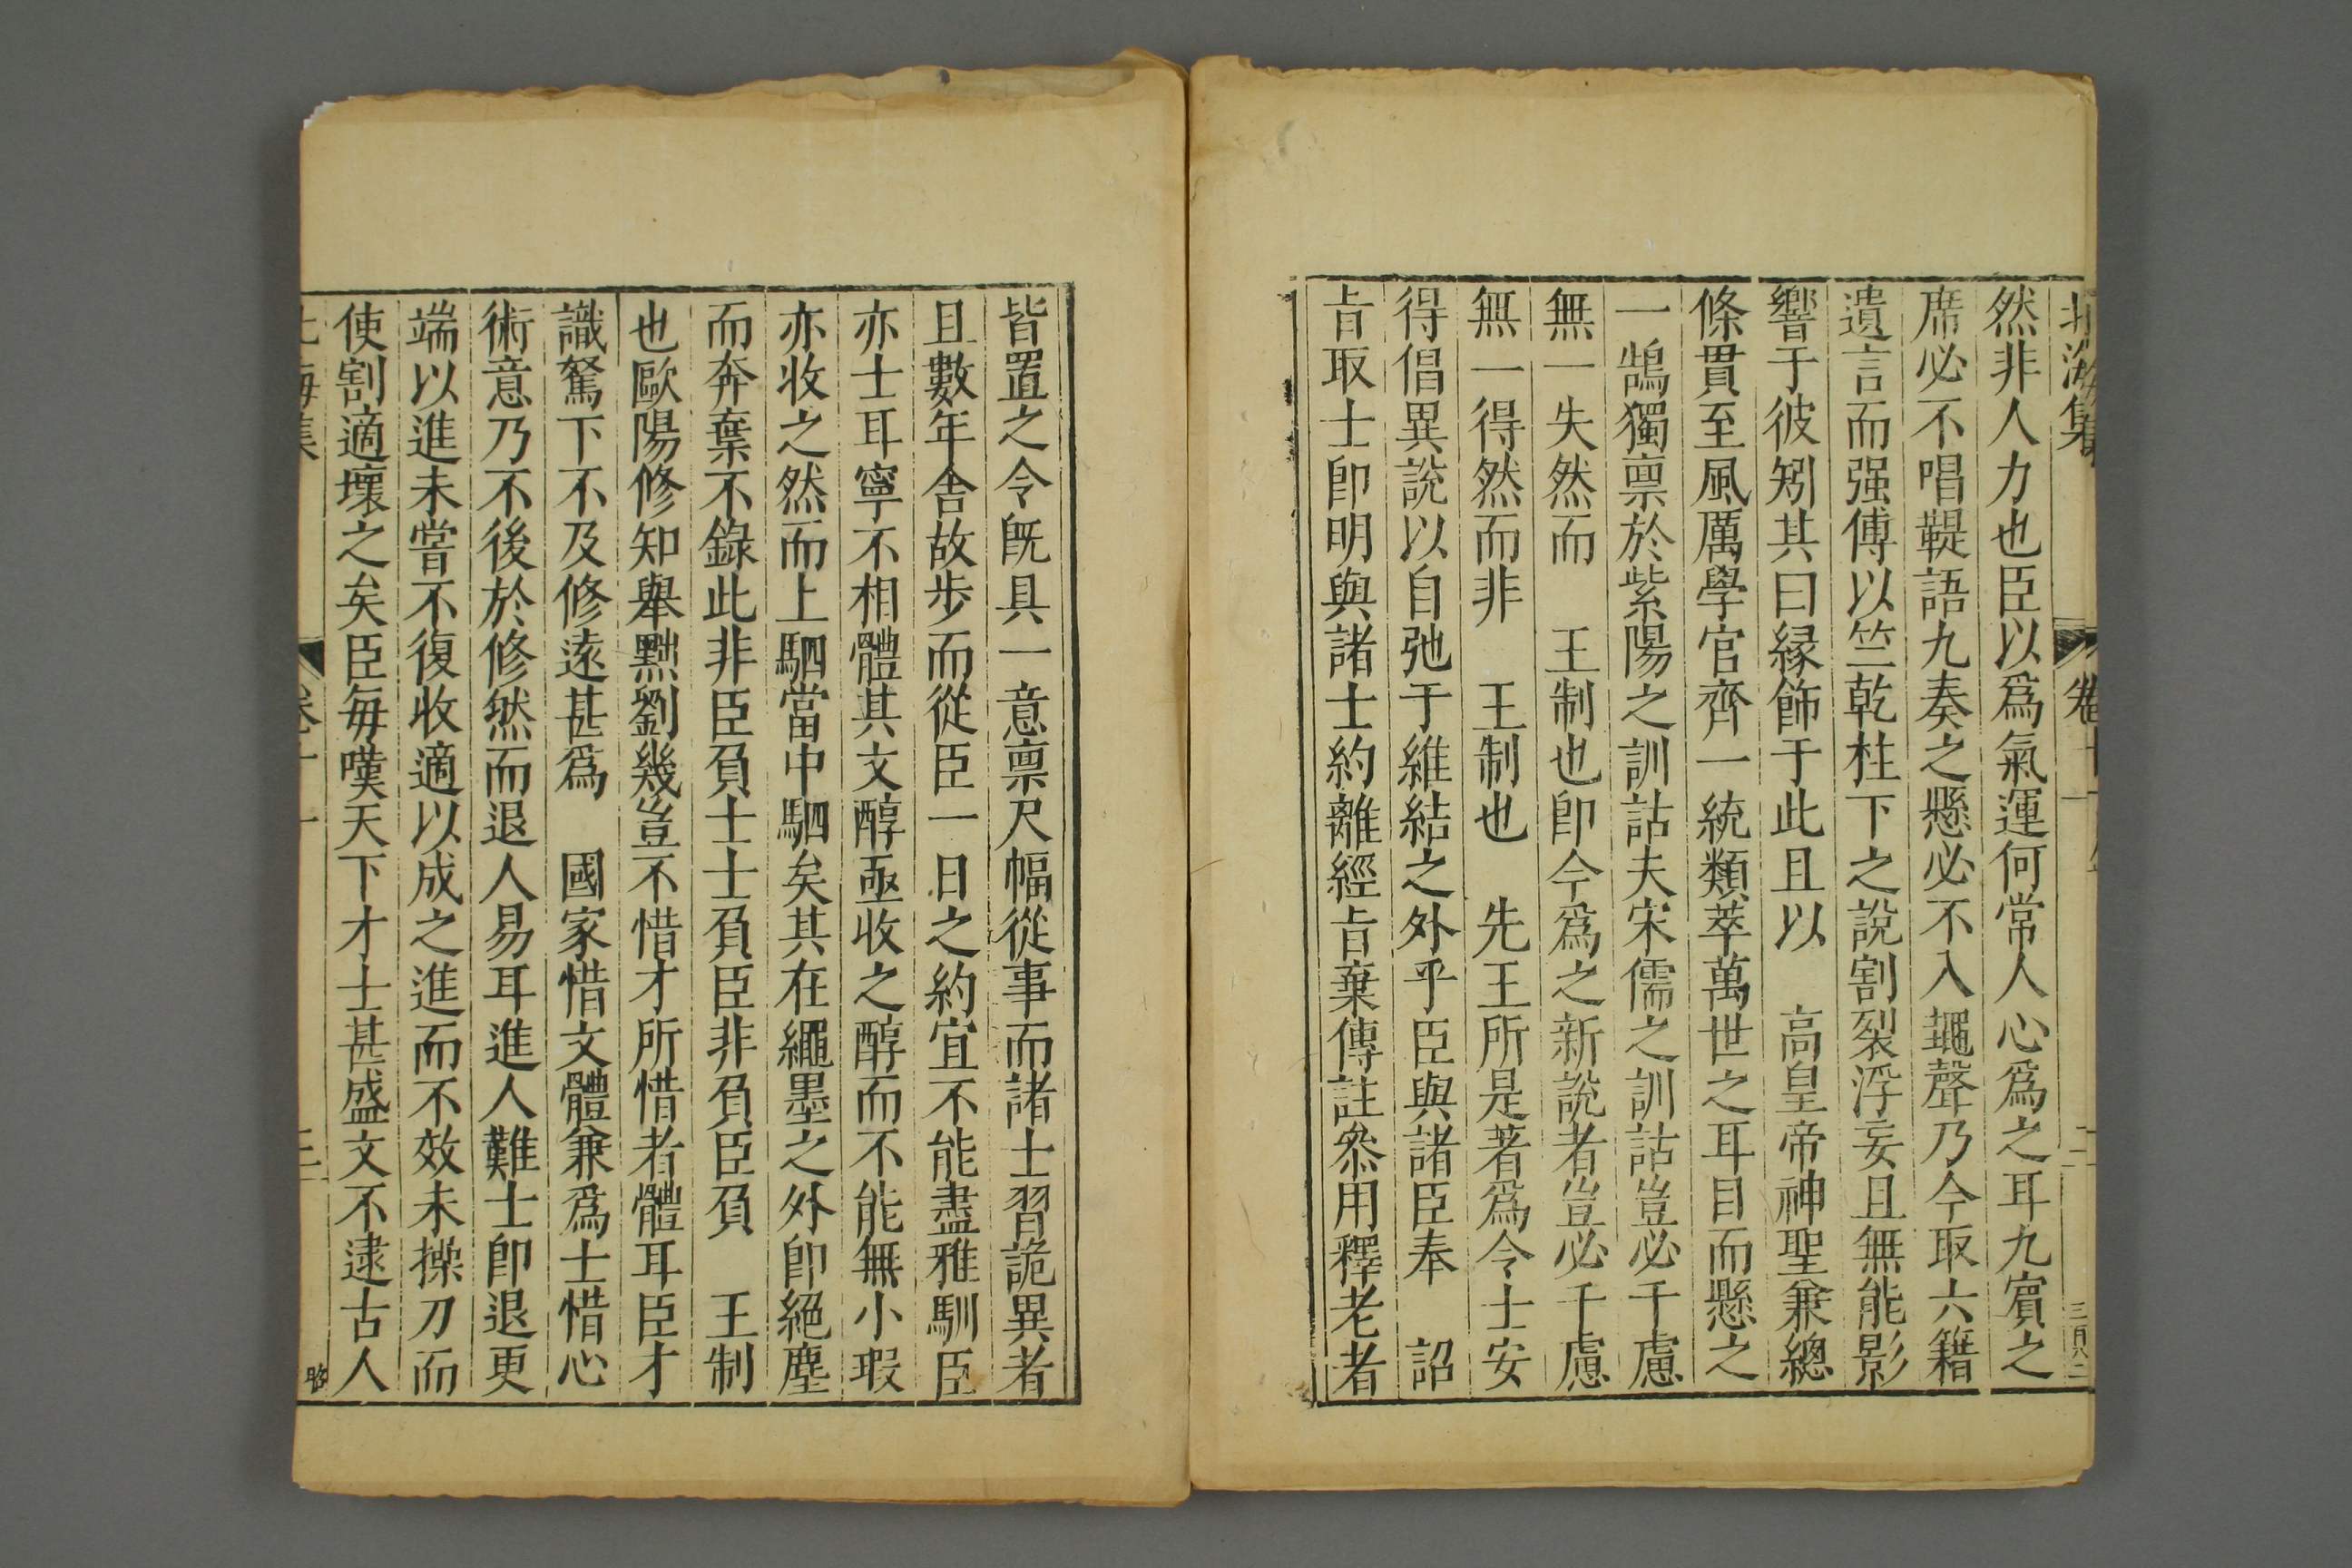 北海集 卷十一 二 三百八二
然非人力也臣以爲氣運何常人心爲之耳九賓之
席必不唱鞮語九奏之懸必不入鼃聲乃今取六籍
遺言而强傅以竺乾柱下之說割裂浮妄且無能影
響于彼矧其曰縁飾于此且以　高皇帝神聖兼總
條貫至風厲學官齊一統類萃萬世之耳目而懸之
一鵠獨禀於紫陽之訓詁夫宋儒之訓詁豈必千慮
無一失然而　王制也卽今爲之新說者豈必千慮
無一得然而非　王制也　先王所是著爲令士安
得倡異說以自弛于維結之外乎臣與諸臣奉　詔
旨取士卽明與諸士約離經旨棄傳註叅用釋老者
皆置之令旣具一意禀尺幅從事而諸士習詭異者
且數年舍故步而從臣一日之約宜不能盡雅馴臣
亦士耳寧不相體其文醇亟收之醇而不能無小瑕
亦收之然而上駟當中駟矣其在繩墨之外卽絕塵
而奔棄不錄此非臣負士士負臣非負臣負　王制
也歐陽修知舉黜劉幾豈不惜才所惜者體耳臣才
識駑下不及修遠甚爲　國家惜文體兼爲士惜心
術意乃不後於修然而退人易耳進人難士卽退更
端以進未嘗不復收適以成之進而不效未操刀而
使割適壞之矣臣每嘆天下才士甚盛文不逮古人
北海集 卷十一 三